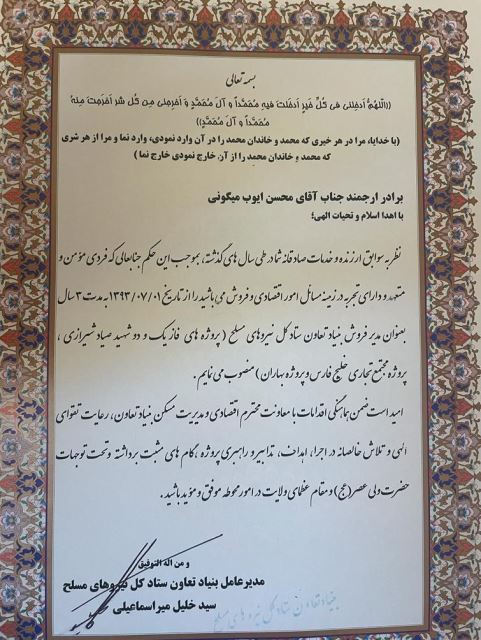 بسمه تعالی
((اللهُمَّ اَدخِلنی فی کُلِّ خَیرٍ اَدخَلتَ فیهِ مُحَمَّداً و آلَ مُحَمَّدٍ وَ اَخرِجنی مِن کُلِّ شَرٍّ اَخرَجتَ مِنهُ
مُحَمَّداً وَ آلَ مُحَمَّدٍ))
(با خدایا، مرا در هر خیری که محمد و خاندان محمد را در آن وارد نمودی، وارد نما و مرا از هر شری
که محمد و خاندان محمد را از آن خارج نمودی خارج نما )
برادر ارجمند جناب آقای محسن ایوب میگونی
با اهدا اسلام و تحیات الهی؛
نظر به سوابق ارزنده و خدمات صادقانه شما در طی سال های گذشته، بموجب این حکم جنابعالی که فردی مؤمن و
متعهد و دارای تجربه در زمینه مسائل امور اقتصادی و فروش می باشید را از تاریخ ۱۳۹۳/۰۷/۰۱ به مدت ۳ سال
بعنوان مدیر فروش بنیاد تعاون ستاد کل نیروهای مسلح ( پروژه های فاز یک و دو شهید صیاد شیرازی ،
پروژه مجتمع تجاری خلیج فارس و پروژه بهاران) منصوب می نمایم .
امید است ضمن هماهنگی اقدامات با معاونت محترم اقتصادی و مدیریت مسکن بنیاد تعاون، رعایت تقوای
الهی و تلاش خالصانه در اجرا، اهداف، تدابیر و راهبری پروژه ،گام های مثبت برداشته و تحت توجهات
حضرت ولی عصر(عج) و مقام عظمای ولایت در امور محوله موفق و مؤید باشید .
و من اله التوفیق
مدیرعامل بنیاد تعاون ستاد کل نیروهای مسلح
سید خلیل میراسماعیلی
بنیاد تعاون ستاد کل نیروهای مسلح